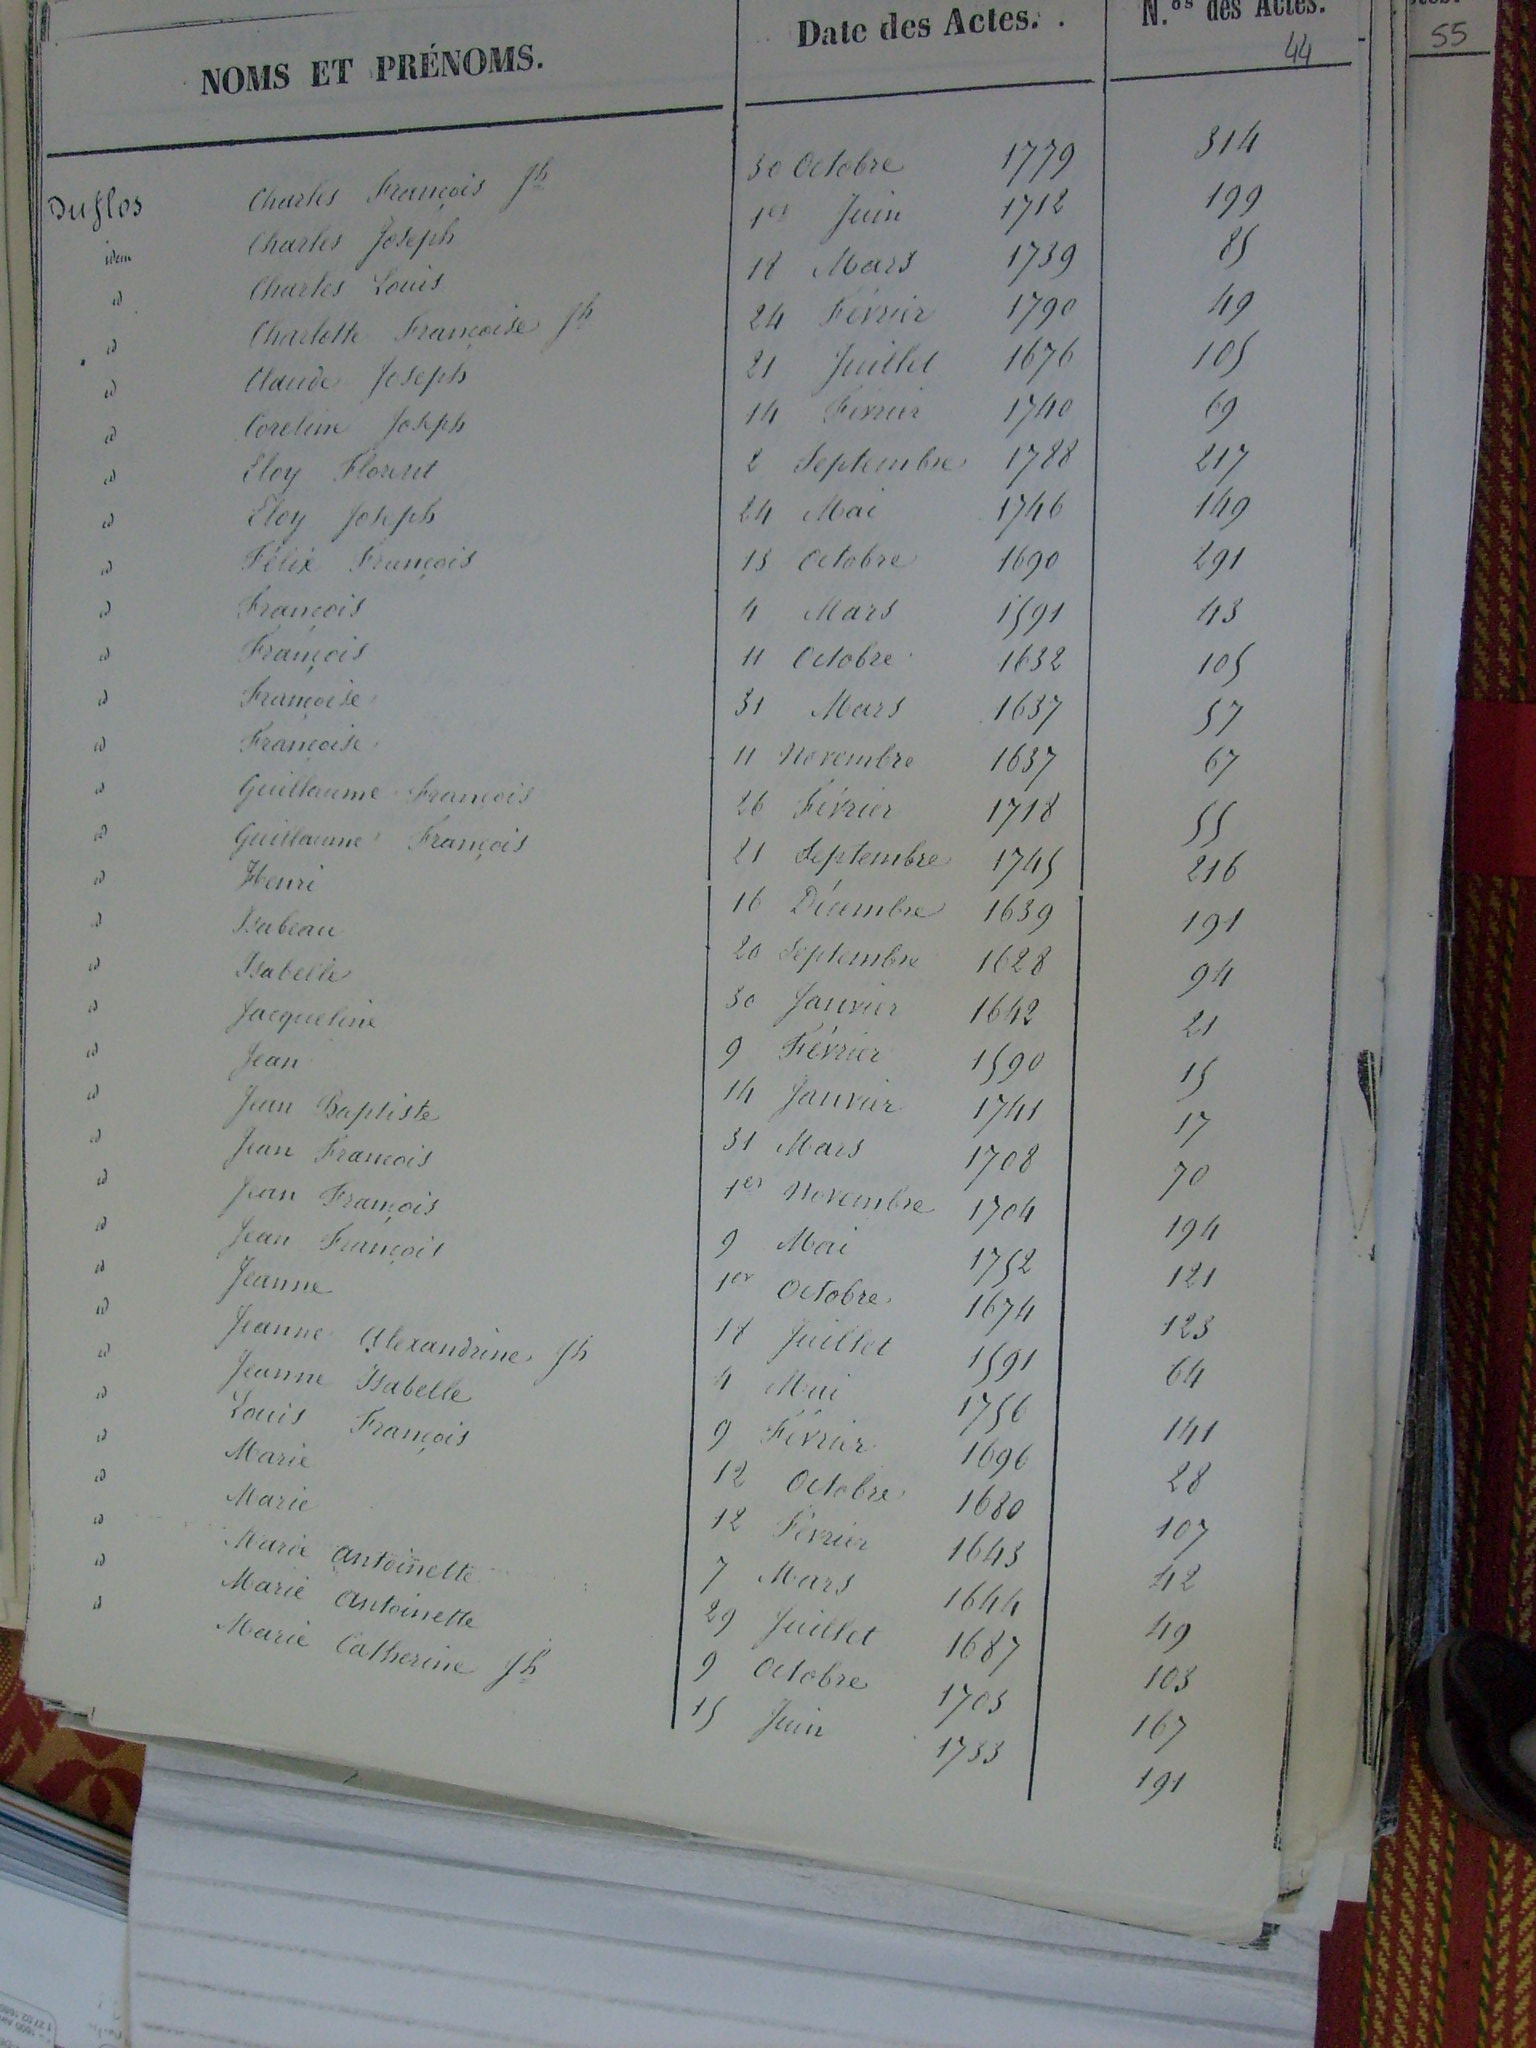 NOMS ET PRÉNOMS. Date des Actes. N.os des Actes.
44
55
Duflos Charles François Jh 30 Octobre 1779 314
idem Charles Joseph 1er Juin 1712 199
id Charles Louis 18 Mars 1739 85
id Charlotte Françoise Jh 24 Février 1790 49
id Claude Joseph 21 Juillet 1676 105
id Coreline Joseph 14 Février 1740 69
id Eloy Florent 2 Septembre 1788 217
id Eloy Joseph 24 Mai 1746 149
id Félix François 15 Octobre 1690 291
id François 4 Mars 1591 43
id François 11 Octobre 1632 105
id Françoise 31 Mars 1637 57
id Françoise 11 Novembre 1637 67
id Guillaume François 26 Février 1718 55
id Guillaume François 21 Septembre 1745 216
id Henri 16 Décembre 1639 191
id Isabeau 20 Septembre 1628 94
id Isabelle 30 Janvier 1642 21
id Jacqueline 9 Février 1590 15
id Jean 14 Janvier 1741 17
id Jean Baptiste 31 Mars 1708 70
id Jean François 1er Novembre 1704 194
id Jean François 9 Mai 1752 121
id Jean François 1er Octobre 1674 123
id Jeanne 18 Juillet 1591 64
id Jeanne Alexandrine Jh 4 Mai 1756 141
id Jeanne Isabelle 9 Février 1696 28
id Louis François 12 Octobre 1680 107
id Marie 12 Février 1643 42
id Marie 7 Mars 1644 49
id Marie Antoinette 29 Juillet 1687 103
id Marie Antoinette 9 Octobre 1703 167
id Marie Catherine Jh 15 Juin 1733 191